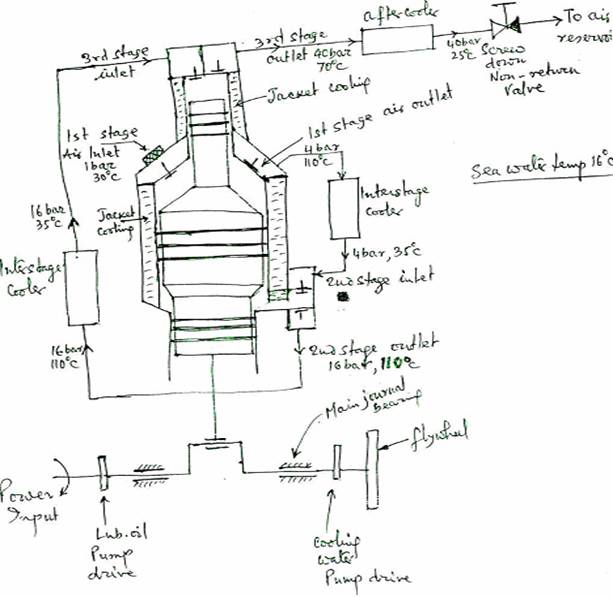 aftercooler
To air
reservoi
3rd stage
inlet
3rd stage
outlet 40bar
70°C
40bar
25°C
Screw
down
Non-return
Valve
Jacket cooling
1st stage air outlet
1st stage
Air Inlet
1bar
30°C
4bar
110°C
Sea water temp 16°c
16bar
35°C
Jacket
cooling
Interstage
Cooler
4bar, 35°C
Interstage
Cooler
2nd stage inlet
16bar
110°C
2nd stage outlet
16bar, 110°C
Main journal
Bearing
flywheel
Power
Input
Lub.oil
Pump
drive
Cooling
water
Pump drive